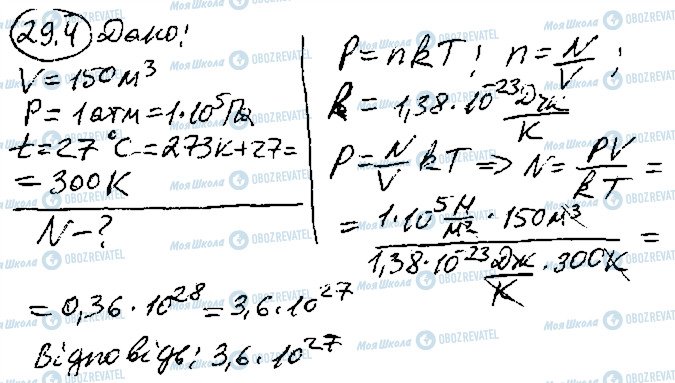 29.4 Дано:
V = 150 м³
P = 1 атм = 1·10⁵ Па
t = 27°C = 273К + 27 =
= 300К
N - ?
P = nkT; n = N/V;
k = 1,38·10⁻²³ Дж/К
P = N/V kT => N = PV/kT =
= (1·10⁵ Н/м² · 150 м³)/(1,38·10⁻²³ Дж/К · 300К) =
= 0,36·10²⁸ = 3,6·10²⁷
Відповідь: 3,6·10²⁷